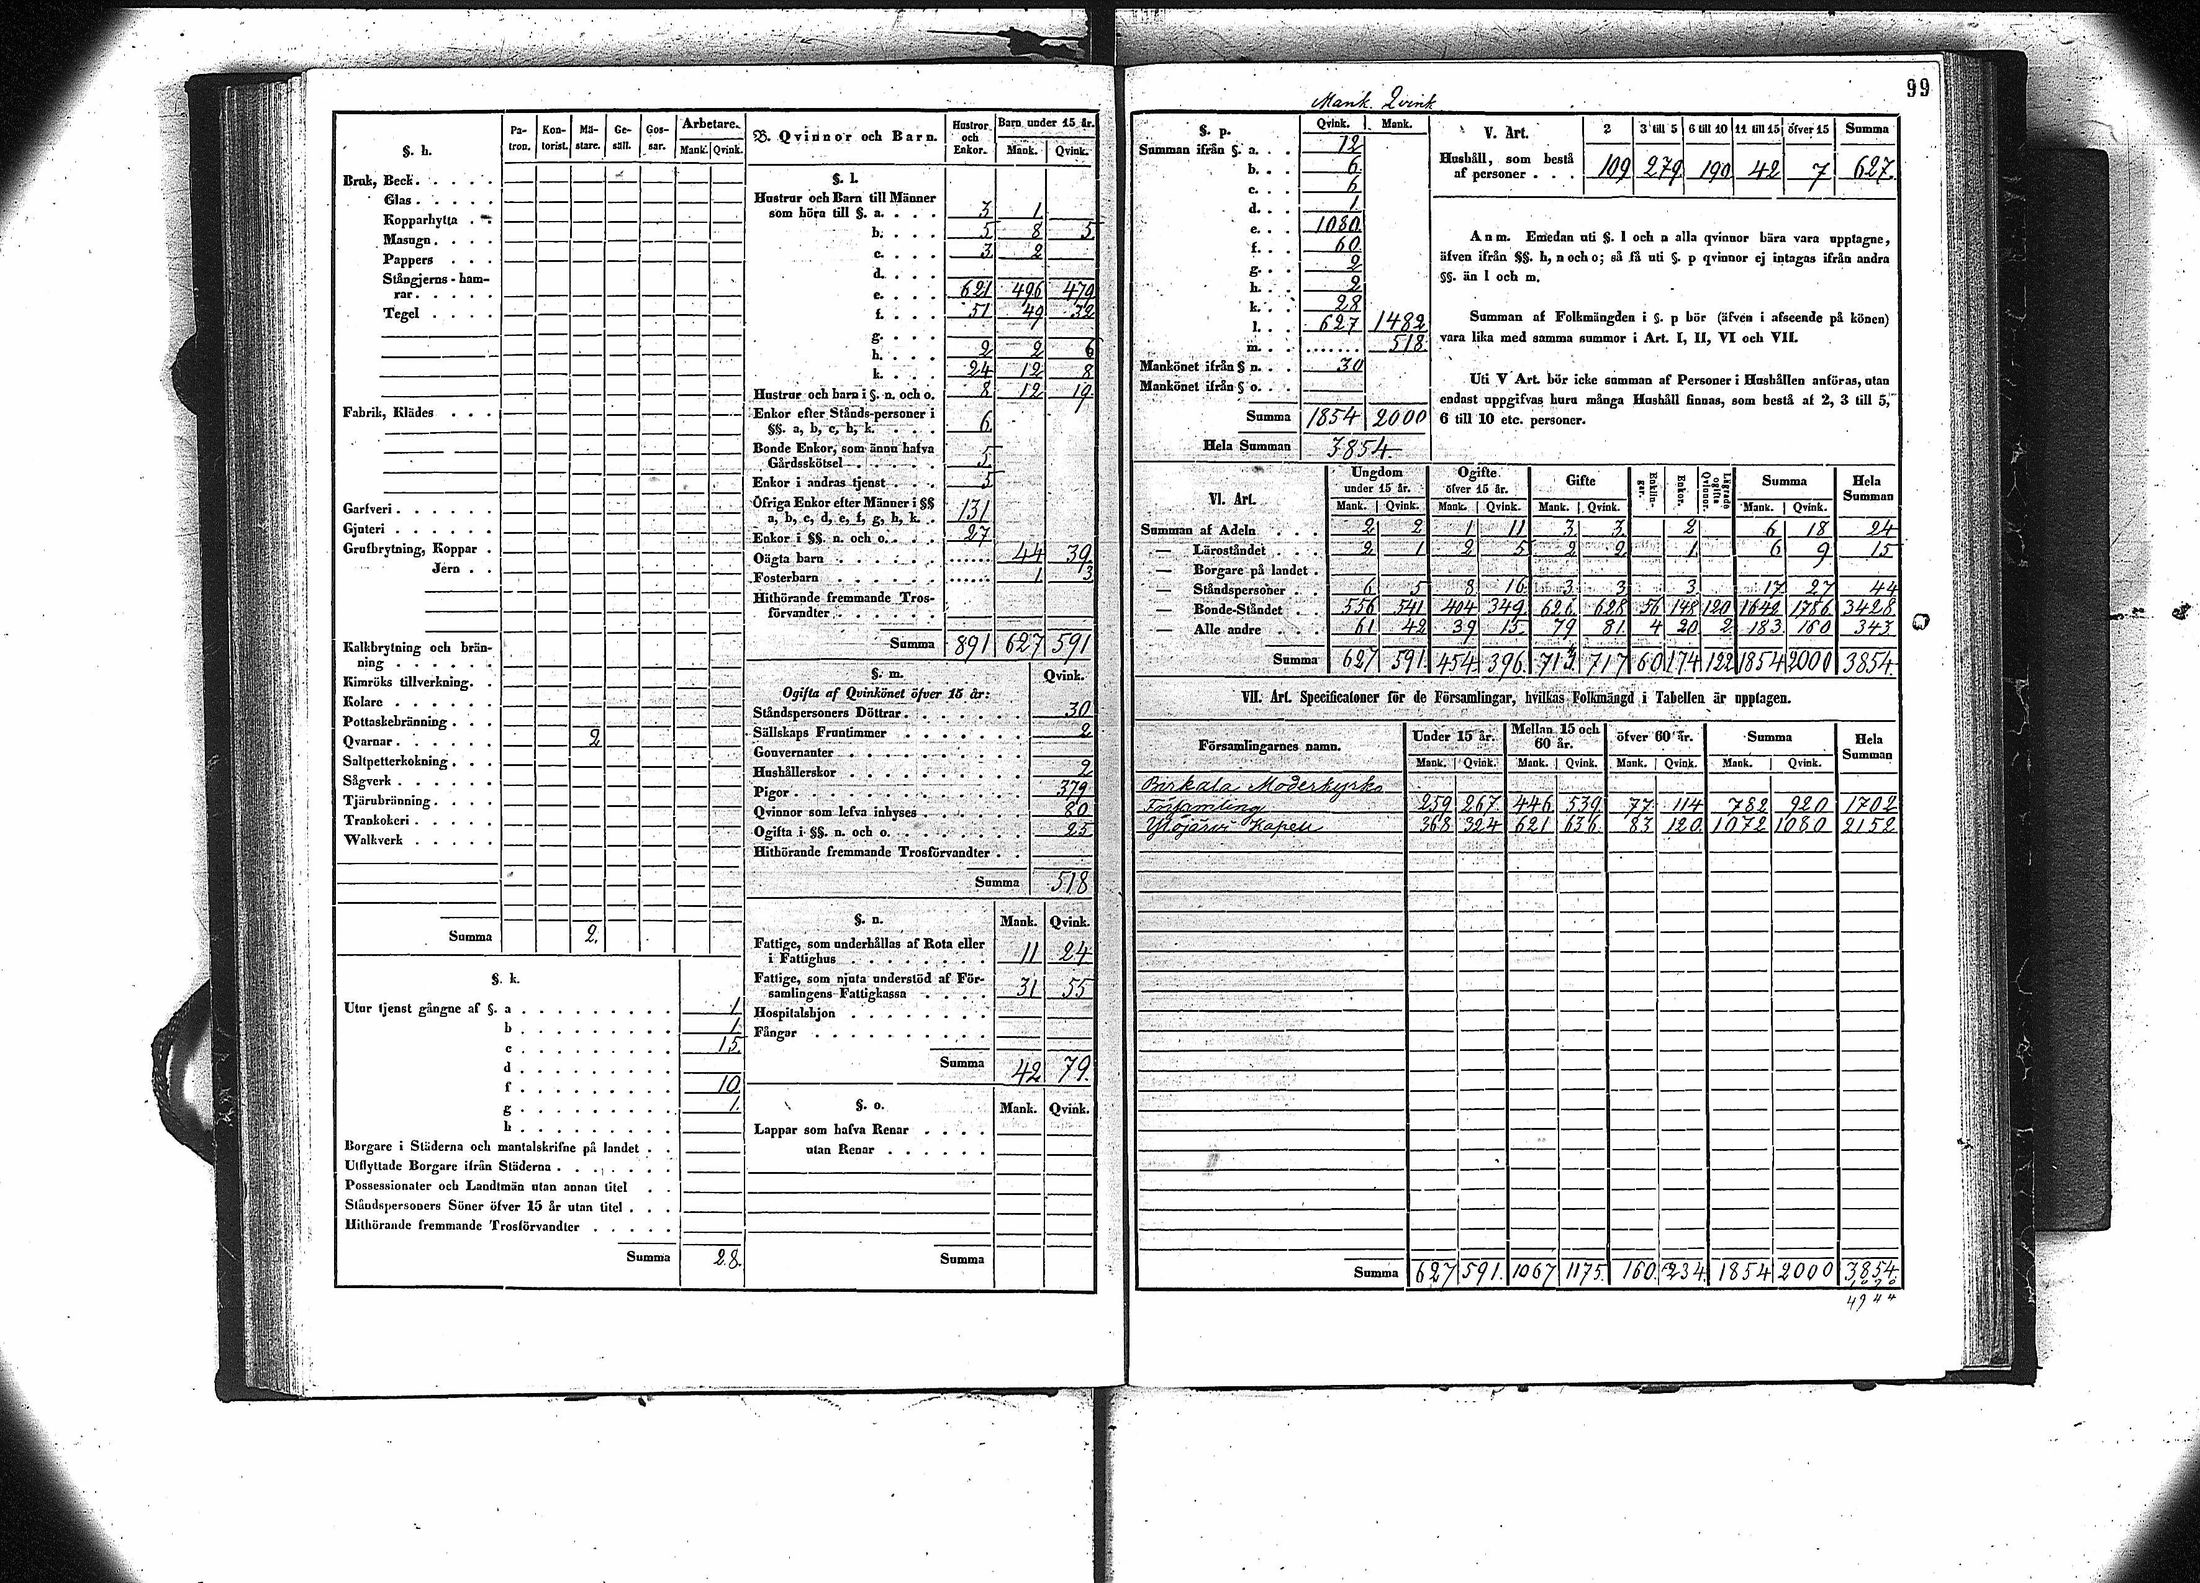 99
§. h. Pa- tron. Kon- torist. Mä- stare. Ge- säll. Gos- sar. Arbetare. Mank. Qvink.
Bruk, Beck
Glas
Kopparhytta
Masugn
Pappers
Stångjerns-ham-
rar
Tegel
Fabrik, Klädes
Garfveri
Gjuteri
Grufbrytning, Koppar
Jern
Kalkbrytning och brän-
ning
Kimröks tillverkning
Kolare
Pottaskebränning
Qvarnar 2
Saltpetterkokning
Sågverk
Tjärubränning
Trankokeri
Walkverk
Summa 2.
§. k.
Utur tjenst gångne af §. a 1
b 1.
c 15.
d
f 10
g 1.
h
Borgare i Städerna och mantalskrifne på landet
Utflyttade Borgare ifrån Städerna
Possessionater och Landtmän utan annan titel
Ståndspersoners Söner öfver 15 år utan titel
Hithörande fremmande Trosförvandter
Summa 28.
B. Qvinnor och Barn. Hustror och Enkor. Barn under 15 år. Mank. Qvink.
§. l.
Hustrur och Barn till Männer
som höra till §. a. 3 1
b. 5 8 5
c. 3 2
d.
e. 621 496 479
f. 51 49 32
g.
h. 2 2 6
k. 24 12 8
Hustrur och barn i §. n. och o. 8 12 19
Enkor efter Stånds-personer i
§§. a, b, c, h, k. 6
Bonde Enkor, som ännu hafva
Gårdsskötsel 5.
Enkor i andras tjenst 5
Öfriga Enkor efter Männer i §§
a, b, c, d, e, f, g, h, k. 131
Enkor i §§. n. och o. 27
Oägta barn 44 39
Fosterbarn 1 3
Hithörande fremmande Tros-
förvandter
Summa 891 627 591
§. m. Qvink.
Ogifta af Qvinkönet öfver 15 år:
Ståndspersoners Döttrar 30
Sällskaps Fruntimmer 2
Gouvernanter
Hushållerskor 2
Pigor 379
Qvinnor som lefva inhyses 80
Ogifta i §§. n. och o. 25
Hithörande fremmande Trosförvandter
Summa 518
§. n. Mank. Qvink.
Fattige, som underhållas af Rota eller
i Fattighus 11 24
Fattige, som njuta understöd af För-
samlingens Fattigkassa 31 55
Hospitalshjon
Fångar
Summa 42 79.
§. o. Mank. Qvink.
Lappar som hafva Renar
utan Renar
Summa
Mank. Qvink
§. p. Qvink. Mank.
Summan ifrån §. a. 12
b. 6
c. 6
d. 1.
e. 1080
f. 60
g. 2
h. 2
k. 28
l. 627 1482
m. 518
Mankönet ifrån § n. 30
Mankönet ifrån § o.
Summa 1854 2000
Hela Summan 3854.
V. Art. 2 3 till 5 6 till 10 11 till 15 öfver 15 Summa
Hushåll, som bestå
af personer 109 279 190 42 7 627.
Anm. Emedan uti §. l och n alla qvinnor bära vara upptagne,
äfven ifrån §§. h, n och o; så få uti §. p qvinnor ej intagas ifrån andra
§§. än l och m.
Summan af Folkmängden i §. p bör (äfven i afseende på könen)
vara lika med samma summor i Art. I, II, VI och VII.
Uti V Art. bör icke summan af Personer i Hushållen anföras, utan
endast uppgifvas huru många Hushåll finnas, som bestå af 2, 3 till 5,
6 till 10 etc. personer.
VI. Art. Ungdom under 15 år. Ogifte öfver 15 år. Gifte Enklin- gar. Enkor. Lägrade ogifta Qvinnor. Summa Hela Summan
Mank. Qvink. Mank. Qvink. Mank. Qvink. Mank. Qvink.
Summan af Adeln 2 2 1 11 3 3 2 6 18 24
— Läroståndet 2 1 2 5 2 2 1 6 9 15
— Borgare på landet
— Ståndspersoner 6 5 8 16 3 3 3 17 27 44
— Bonde-Ståndet 556 541 404 349 626 628 56 148 120 1642 1786 3428
— Alle andre 61 42 39 15 79 81 4 20 2 183 160 343
Summa 627 591 454 396 713 717 60 174 122 1854 2000 3854.
VII. Art. Specificatoner för de Församlingar, hvilkas Folkmängd i Tabellen är upptagen.
Församlingarnes namn. Under 15 år. Mellan 15 och 60 år. öfver 60 år. Summa Hela Summan
Mank. Qvink. Mank. Qvink. Mank. Qvink. Mank. Qvink.
Birkala Moderkyrko
Församling 259 267 446 539 77 114 782 920 1702
Ylöjärvi Kapell 368 324 621 636 83 120 1072 1080 2152
Summa 627 591. 1067 1175 160 234 1854 2000 3854